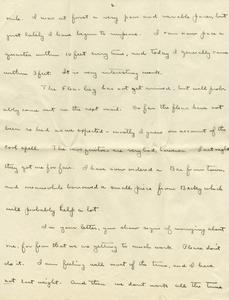 2
mile. I was at first a very poor and variable pacer, but
just lately I have begun to improve. I can now pace a
quarter within 10 feet every time, and today I generally came
within 3 feet. It is very interesting work.
The Flea-bag has not yet arrived, but will prob-
ably come out in the next mail. So far the fleas have not
been so bad as we expected - mostly I guess on account of the
cool spell. The mosquitoes are very bad, however. Last night
they got me for fair. I have now ordered a Bar from town,
and meanwhile borrowed a small piece from Becky which
will probably help a lot.
In your letter, you show signs of worrying about
me, for fear that we are getting too much work. Please don't
do it. I am feeling well most of the time, and I have
not lost weight. And then we don't work all the time